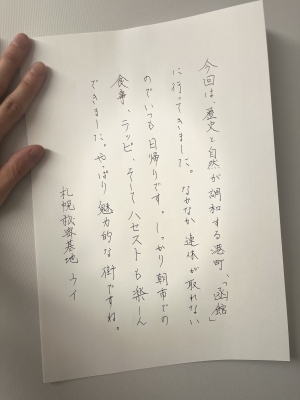 今回は、歴史と自然が調和する港町、「函館」
に行ってきました。なかなか連休が取れない
のでいつも日帰りです。しっかり朝市での
食事、ラッピ、そしてハセストも楽しん
できました。やっぱり魅力的な街ですね。
札幌秘密基地 ウイ